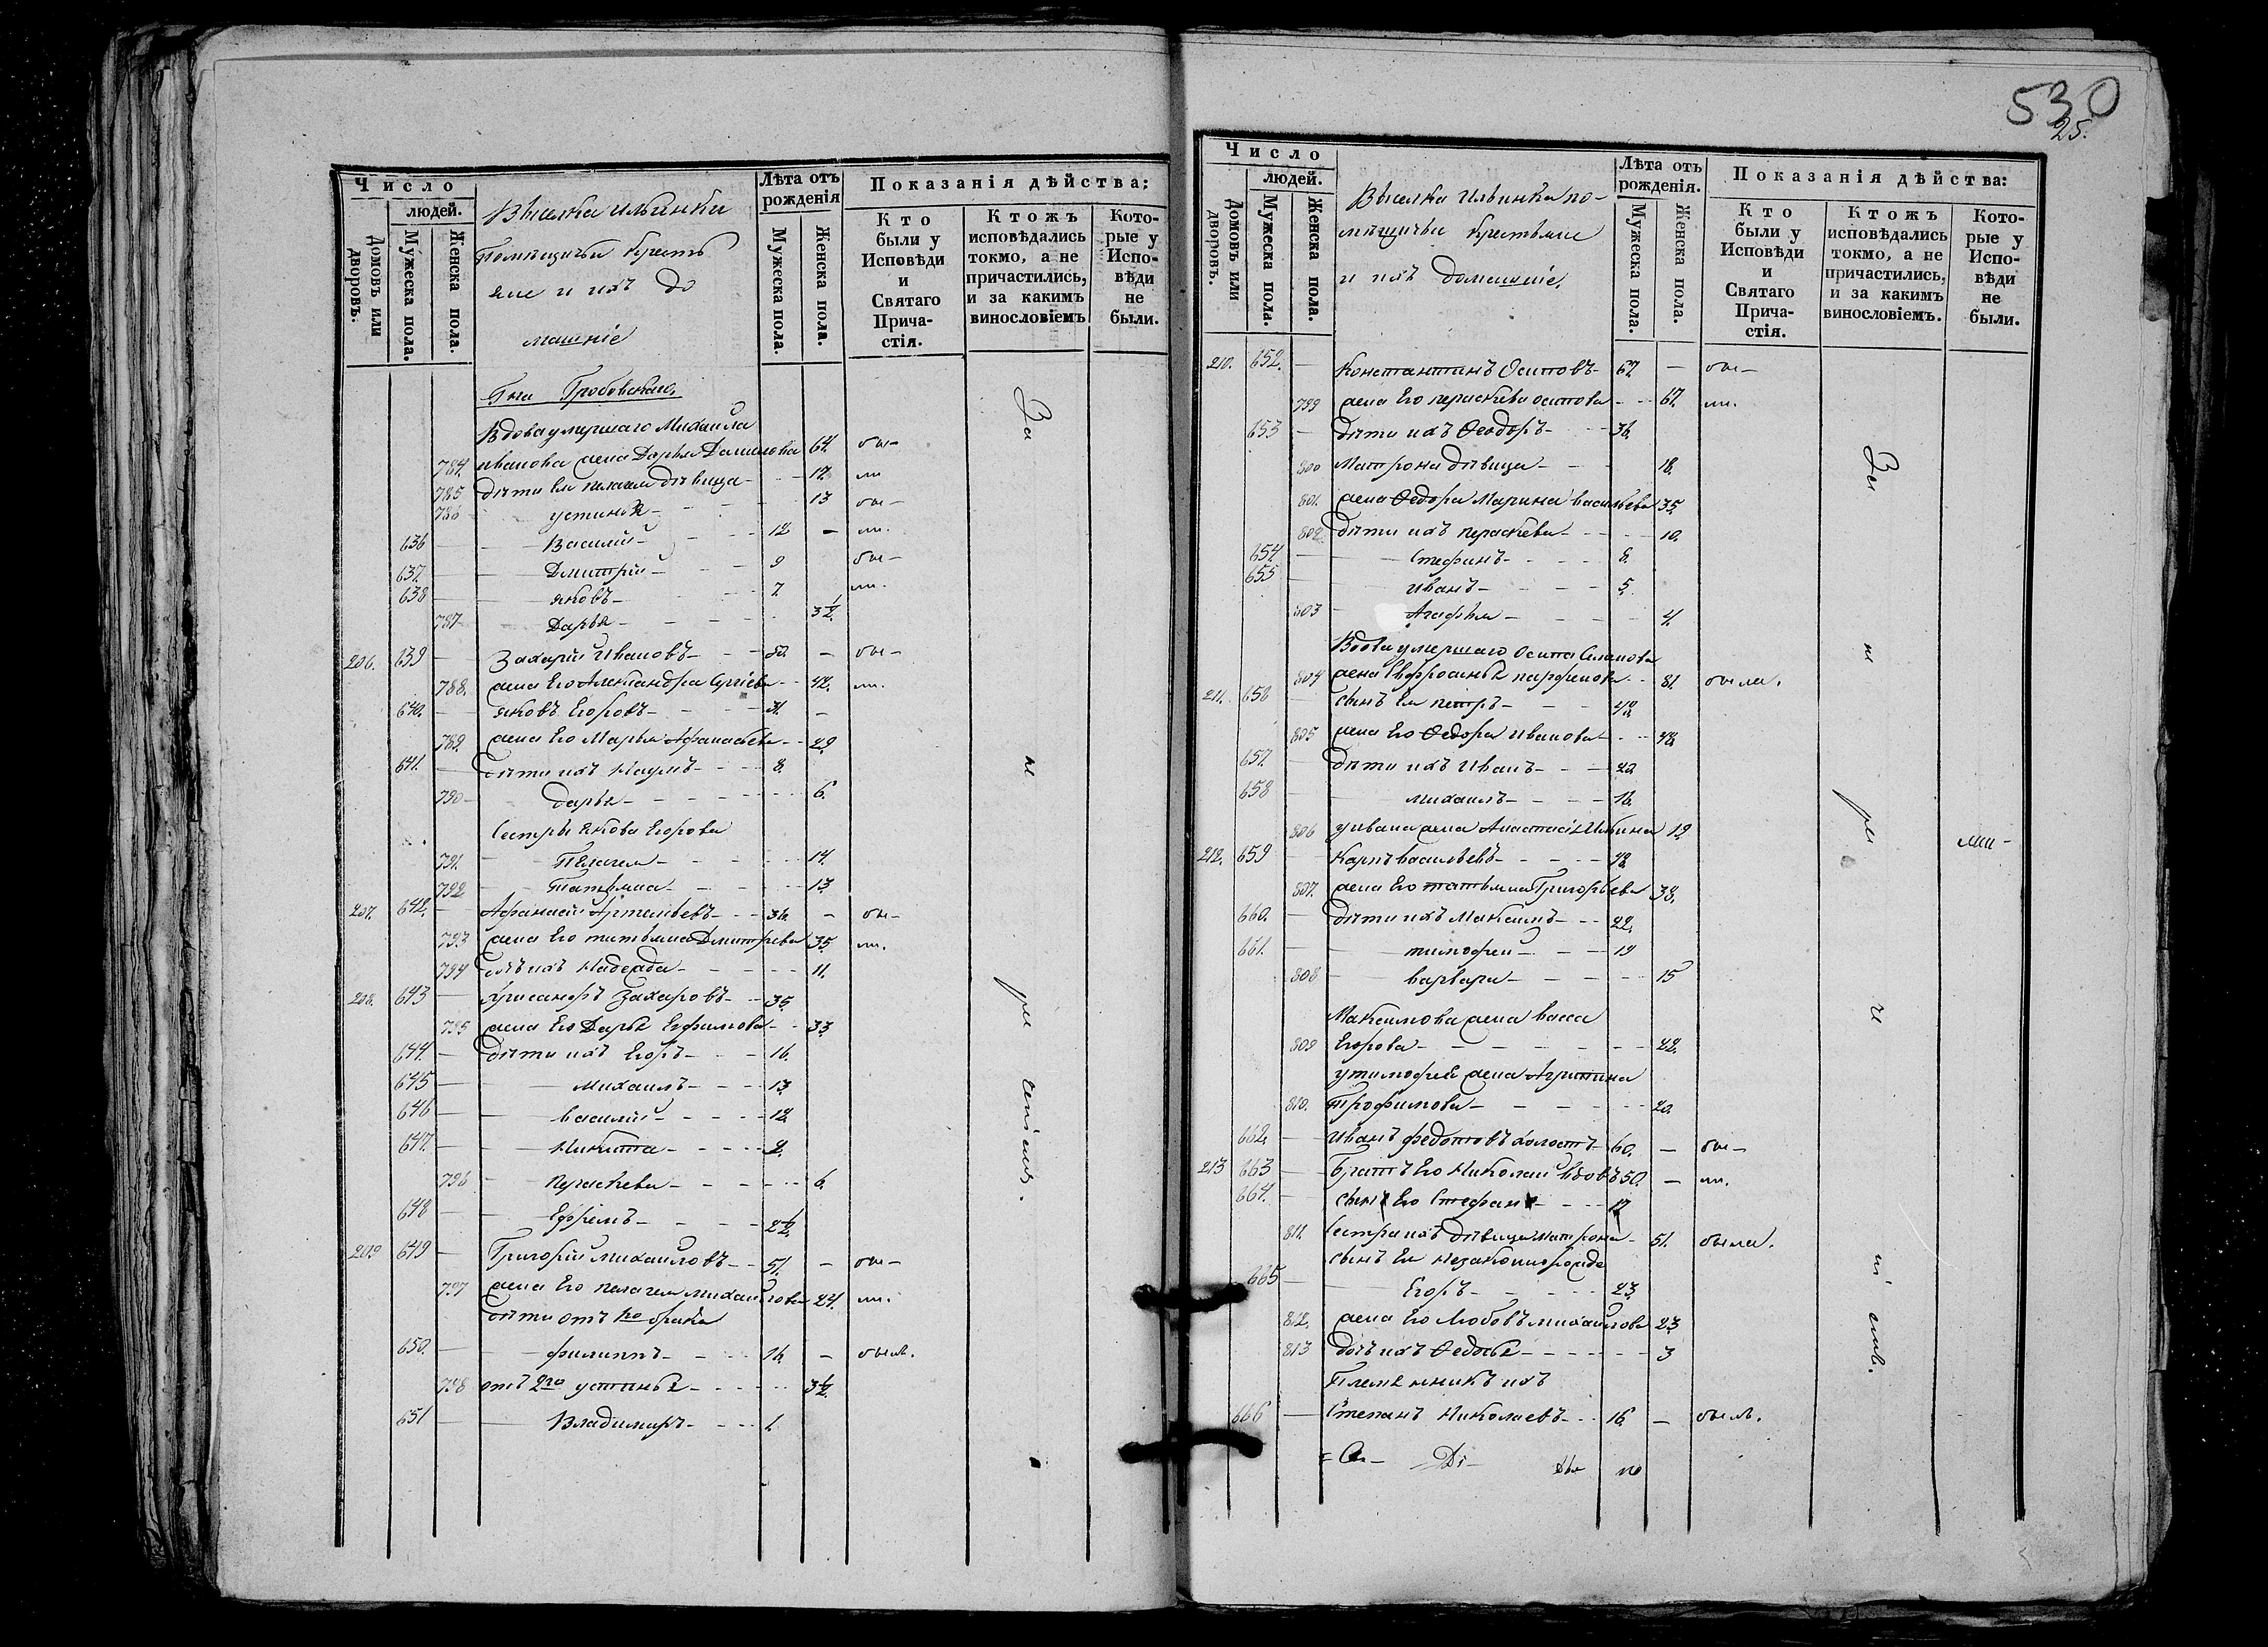 Число
людей.
Домовъ или дворовъ.
Мужеска пола.
Женска пола.
Выселка Ильинки
Помѣщичьи Кресть
яне и ихъ до
машніе
Лѣта отъ рожденія
Мужеска пола.
Женска пола.
Показанія дѣйства:
Кто были у Исповѣди и Святаго Прича-стія.
Ктожъ исповѣдались токмо, а не причастились, и за какимъ винословіемъ
Кото-рые у Испо-вѣди не были.
Гна Гробовскаго.
Вдова умершаго Михаила
784. Иванова жена Дарья 64. бы-
785 дѣти Ея Пелагея дѣвица - 17. ли
786 устинья - 13 бы-
636 - Василій - 12 - ли.
637. - Дмитрій - 9 бы-
638 - яковъ - 7. ли.
787 Дарья - 3½.
206. 639 - Захарій Ивановъ - 50. - бы-
788. жена Его Александра Сергіева - 42. ли.
640. - яковъ Егоровъ - 31. -
789. жена Его Марья Афанасьева - 29
641. - дѣти ихъ Наумъ - 8.
790 - дарья - 6.
Сестры Якова Егорова
791. Пелагея - 14.
792 Татьяна - 13
207. 642. - Афанасій Артемьевъ - 36. - бы-
793 жена Его татьяна Дмитрева 35. ли.
794 дочь ихъ Надежда - 11.
208. 643 - Хрисанфъ Захаровъ - 35.
795 жена Его Дарья Ефимова - 33
644. - дѣти ихъ Егоръ - 16.
645 - Михаилъ - 13
646 - василій - 12
647. - Никита - 9.
796 - Параскева - 6.
648 - Ефремъ - 2½.
209 649 - Григорій Михаиловъ - 51. - бы-
797 жена Его пелагея михаилова 24. ли.
дѣти отъ 1го брака
650. - филиппъ - 16. - былъ.
798 отъ 2го устинья - 3½.
651 - Владимиръ - 1.
За
не
ра
ченіемъ.
530
25.
Число
людей.
Домовъ или дворовъ.
Мужеска пола.
Женска пола.
Выселка Ильинка по-
мѣщичьи Крестьяне
и ихъ домашніе.
Лѣта отъ рожденія.
Мужеска пола.
Женска пола.
Показанія дѣйства:
Кто были у Исповѣди и Святаго Прича-стія.
Ктожъ исповѣдались токмо, а не причастились, и за какимъ винословіемъ.
Кото-рые у Испо-вѣди не были.
210. 652. - Константинъ Осиповъ - 67. - бы-
799 жена Его параскева осипова - 67. ли.
653 - дѣти ихъ Ѳеодоръ - 36.
800 Матрона дѣвица - 18.
801. жена Ѳедора Марина васильева 35.
802 дѣти ихъ параскева - 10.
654 - Стефанъ - 8.
655 - иванъ - 5.
803 - Агафья - 4.
Вдова умершаго Осипа
804 жена Евфросинья парфенова - 81. была.
211. 656 - сынъ Ея петръ - 49
805 жена Его Ѳедора иванова - 48.
657. - дѣти ихъ Иванъ - 20
658 - михаилъ - 16.
806 у ивана жена Анастасія Ильина 19
212. 659 - Карпъ васильевъ - 42.
807. жена Его татьяна Григорьева 38.
660. - дѣти ихъ Максимъ - 22.
661. - тимофей - 19
808 - варвара - 15
Максимова жена васса
809 Егорова - 22.
у тимофея жена Агрипина
810. Трофимова - 20.
662. - Иванъ федотовъ холостъ - 60. - бы-
213 663 - братъ Его Николай вдовъ 50. - ли.
664. - сынъ Его Стефанъ - 17
811. Сестра ихъ дѣвица матрона - 51. была.
сынъ Ея незаконнорожде
665 - Егоръ - 23
812. жена Его Любовъ михаилова 23
813 дочь ихъ Ѳедосья - 3
Племянникъ ихъ
666 - Степанъ Николаевъ - 16. - былъ.
За
не
ра
че
ні
емъ.
ли-